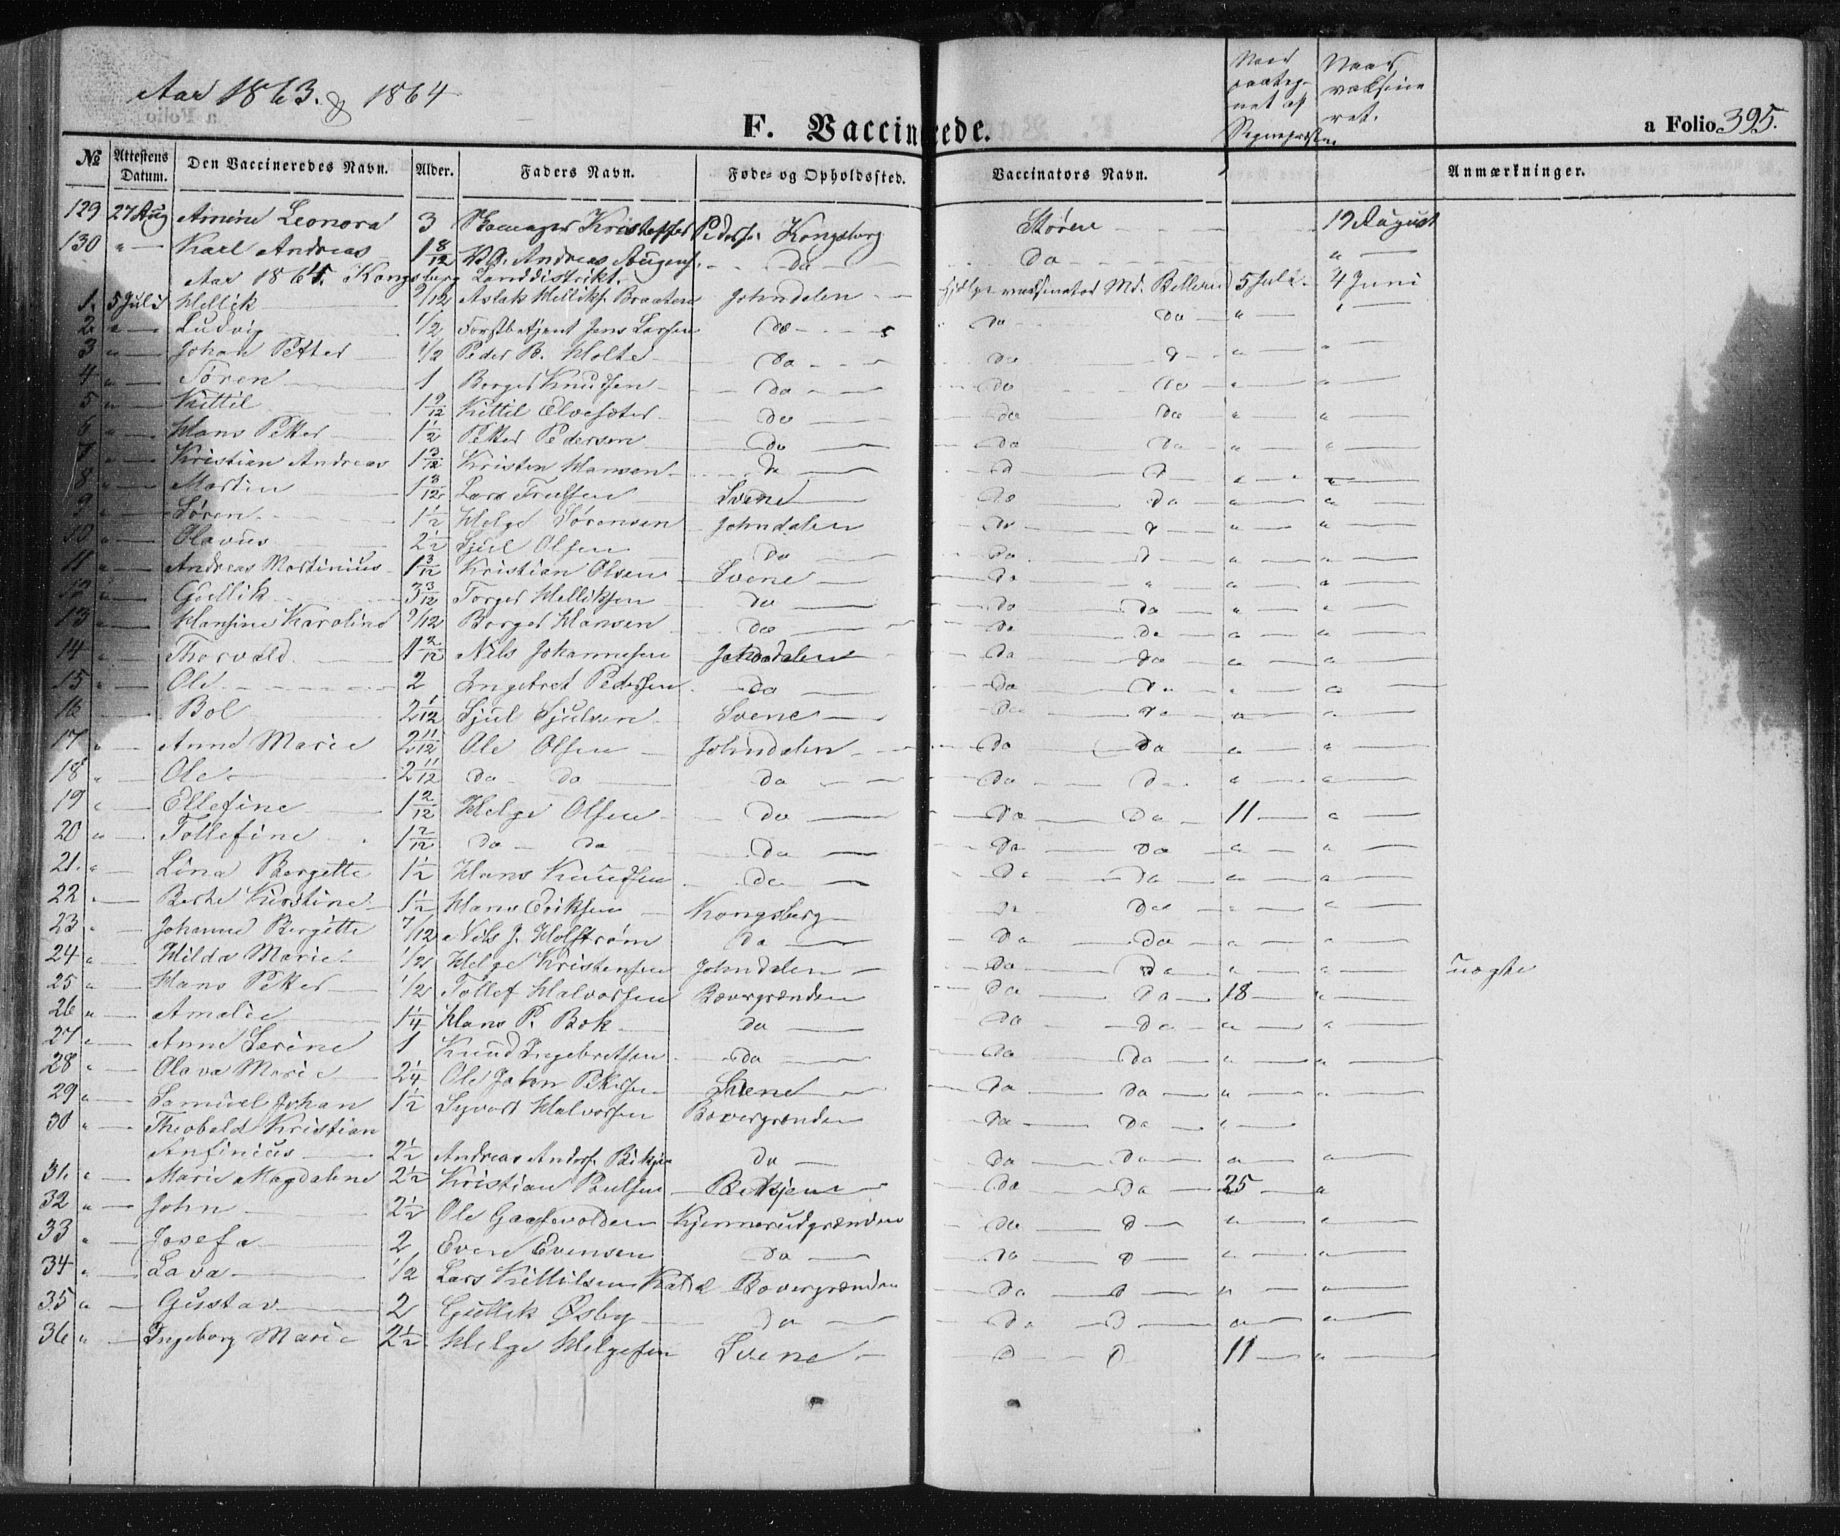 Aar 1863. & 1864
F. Vaccinerede.
Naar paateg- net af Sogneprsten.
Naar vaksine ret.
a Folio 395.
№ Attestens Datum. Den Vaccineredes Navn. Alder. Faders Navn. Føde- og Opholdssted. Vaccinators Navn. Anmærkninger.
129 27 Aug Amine Leonora 3 Skomager Kristoffer Pedersen Kongsberg Støren 19 August
130 " Karl Andreas 1 8/12 Andreas Do Do "
Aar 1864 i Kongsberg Landdistrikt.
1. 5 Juli Hellik 9/12 Aslak Helliks. Braaten Johndalen Hjælpevaksinator 5 Juli 4 Juni
2. " Ludvig 1/2 Forstbetjent Jens Larsen Do Do Do " "
3 " Johan Petter 1/2 Peder B. Holte Do Do D " "
4 " Søren 1 Borger Knudsen Do Do Do " "
5 " Kittil 1 9/12 Kittil Elvesæter Do Do Do " "
6 " Hans Petter 1 1/2 Petter Pedersen Do Do Do " "
7 " Kristian Andreas 1 3/12 Kristen Hansen Do D D " "
8 " Martin 1 3/12 Lars Trulsen Svene Do Do " "
9 " Søren 1 1/2 Helge Sørensen Johndalen Do D " "
10 " Olavus 2 1/2 Sjul Olsen Do Do D " "
11 " Andreas Martinius 1 3/12 Kristian Olsen Svene Do " " "
12 " Gullik 3 3/12 Torger Helliksen Do Do Do " "
13 " Hansine Karoline 9/12 Borger Hansen Do Do Do " "
14 " Thorvald 1 2/12 Nils Johannesen Johndalen Do Do " "
15 " Ole 2 Ingebret Pedersen Do Do Do " "
16 Bol 2 1/12 Sjul Sjulsen Svene Do Do " "
17 " Anne Marie 2 11/12 Ole Olsen Johndalen Do Do " "
18 " Ole 2 11/12 Do Do Do Do Do " "
19 " Ellefine 1 2/12 Helge Olsen Do Do Do 11 "
20 " Tollefine 1 2/12 Do Do Do Do Do " "
21. " Lina Bergitte 1 1/2 Hans Knudsen Do Do Do " "
22 " Berte Kirstine 1 1/2 Hans Eriksen Kongsberg Do Do " "
23 " Johanne Bergitte 7/12 Nils J. Holstrøm Do Do Do " "
24 " Hilda Marie 1/2 Helge Kristensen Johndalen Do Do " " uægte
25 " Hans Petter 1/2 Tollef Halvorsen Bævergrænden Do Do 18 "
26 " Amalie 1 1/4 Hans P. Bok Do Do Do " "
27 " Anne Serine 1 Knud Ingebretsen Do Do Do " "
28 " Olava Marie 2 1/4 Ole John Pettersen Svene Do Do " "
29 " Samuel Johan 1 1/2 Syvert Halvorsen Bævergrænden Do Do "
30 " Theobald Kristian
Anfinius 2 1/2 Andreas Anders. Bekjen Do Do Do " "
31. " Marie Magdalene 2 1/2 Kristian Paulsen Bekjen Do Do 25 "
32 " John 2 1/2 Ole Gaasevolden Kjennerudgrænden Do D " "
33 " Josefa 2 Even Evensen Do Do D " "
34 " Lava 1/2 Lars Kittilsen Bævergrænden Do D " "
35 " Gustav 2 Gullik Øsby Do Do D " "
36 " Ingeborg Marie 2 1/2 Helge Helgesen Svene D D 11 "